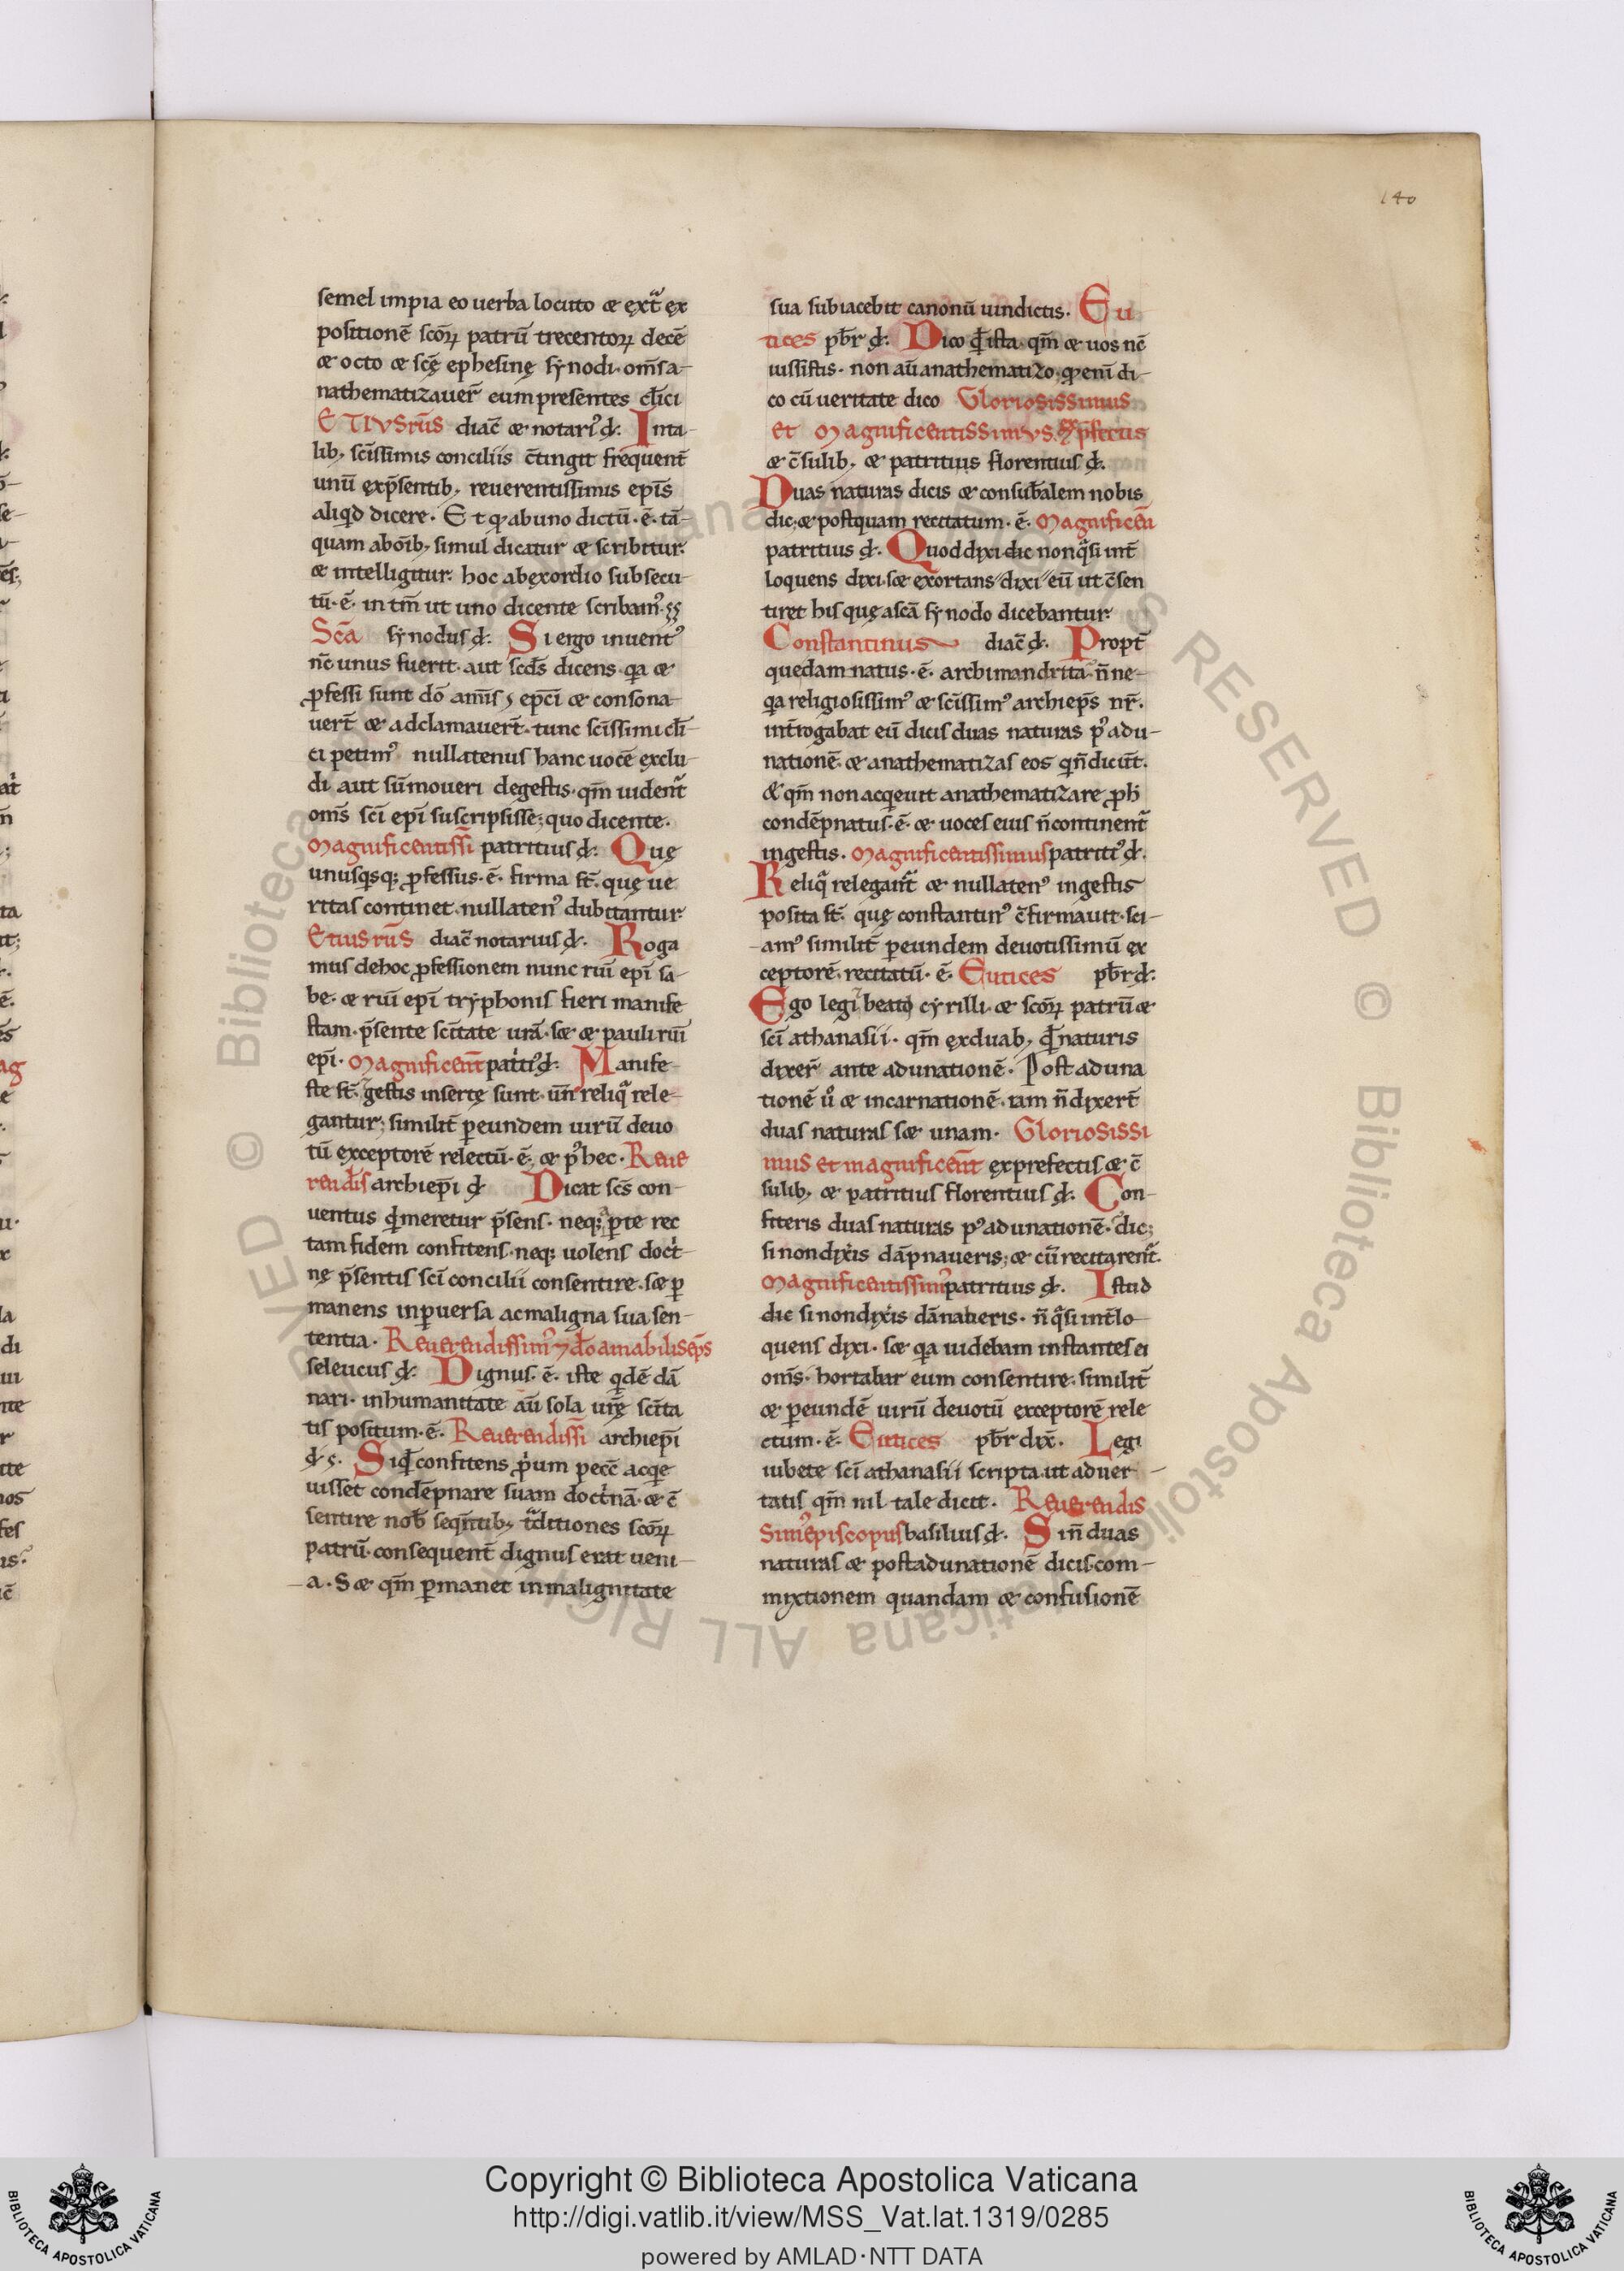 140
semel impia eo uerba locuto & ęxt᷑ ęx
positionē scōꝝ patrū trecentoꝝ decē
& octo & scę̄ ephesinę sẏnodi. om̄s a-
nathematizauer̄ eum presentes cl̄ici
ETIVS rūs diac̄ & notari᷒ đ. Inta-
lib; sc̄issimis conciliis c̄tingit frequent̄
unū ęxp̄sentib; reuerentissimis epīs
aliqd dicere. Et qđ ab uno dictū. ē. tā-
quam ab oīb; simul dicatur & scribitur.
& intelligitur. hoc ab ęxordio subsecu-
tū. ē. in tm̄ ut uno dicente scribam᷒.
Scā sẏnodus đ. Si ergo inuent᷒
nc̄ unus fuerit. aut scđs dicens. qa &
ꝓfessi sunt dō amīs epc̄i & consona-
uert̄ & adclamauert̄. tunc sc̄issimi cl̄i-
ci petim᷒ nullatenus hanc uocē ęxclu-
di aut sūmoueri de gestis. qm̄ uident᷑
om̄s scī epī suscripsisse; quo dicente.
Magnificentissī patritius đ. Quę
unusqsq; ꝓfessus. ē. firma st̄. quę ue
ritas continet. nullaten᷒ dubitantur.
Etius rūs diac̄ notarius đ. Roga
mus de hoc ꝓfessionem nunc ruī epī sa-
be. & ruī epī trẏphonis fieri manife
stam. p̄sente scītate urā. s& & pauli ruī
epī. Magnificent̄ patrit᷒ đ. Manife-
ste st̄. gestis insertę sunt. un̄ reliq᷑ rele-
gantur; similit̄ ꝑeundem uirū deuo
tū exceptorē relectū. ē. & p᷒ hec. Reue
rendīs archiepī đ Dicat scs con-
uentus qđ meretur p̄sens. neq; aperte rec
tam fidem confitens. neq; uolens doct̍-
nę p̄sentis scī concilii consentire. s& ꝑ
manens in ꝑuersa ac maligna sua sen-
tentia. Reuerendissim᷒ & dō amabilis ep̄s
seleucus đ. Dignus. ē. iste qdē dā
nari. in humanitate aū sola urę̄ scīta
tis positum. ē. Reuerendissī archiepī
đ. Si qđ confitens p̍um pecc̄ acqe
uisset condēpnare suam doct̍nā. & c̄
sentire nob̄ seqn̄tib; t᷑ditiones scōꝝ
patrū. consequent̄ dignus erat ueni-
a. S& qm̄ ꝑmanet in malignitate
sua subiacebit canonū uindictis. Eu
tices pb̄r đ. Dico qđ ista. qm̄ & uos nc̄
iussistis. non aū anathematizo. qđ enī di-
co cū ueritate dico Gloriosissimus
Et Magnificentissimvs. ex p̄fectus
& c̄sulib; & patritius florentius đ.
Duas naturas dicis & consub̄alem nobis
dic; & postquam recitatum. ē. Magnificen̄
patritius đ. Quod dixi dic non q᷑si int̄
loquens dixi. s& ęxortans dixi eū ut c̄sen
tiret his quę a scā sẏnodo dicebantur.
Constantinus diac̄ đ. Propt̄
quedam natus. ē. archimandrita. n̄ ne-
qa religiosissim᷒ & sc̄issim᷒ archiep̄s nr̄.
int̄rogabat eū dicis duas naturas p᷒ adu-
nationē. & anathematizas eos qi n̄ dicūt.
& qm̄ non acqeuit anathematizare ꝓ h̍
condēpnatus. ē. & uoces eius n̄ continent᷑
in gestis. Magnificentissimus patriti᷒ đ.
Reliq᷑ relegant᷑ & nullaten᷒ in gestis
posita st̄. quę constantin᷒ c̄firmauit. sci-
am᷒ similit̄ ꝑeundem deuotissimū ęx
ceptorē. recitatū. ē. Eutices pb̄r đ.
Ego legi beato cẏrilli. & scōꝝ patrū &
scī athanasii. qm̄ ęx duab; qđ naturis
dixer̄ ante adunationē. Post aduna
tionē ů & incarnationē. iam n̄ dixert̄
duas naturas s& unam. Gloriosissi
mus et magnificent̄ ęxprefectis & c̄
sulib; & patritius florentius đ. Con-
fiteris duas naturas p᷒ adunationē. dic;
si non dixis dāpnaueris; & cū recitarent᷑.
Magnificentissim᷒ patritius đ. Istud
dic si non dixis dānaberis. n̄ q᷑si int̄lo-
quens dixi. s& qa uidebam instantes ei
om̄s. hortabar eum consentire. similit̄
& ꝑeundē uirū deuotū ęxceptorē rele
ctum. ē. Eutices pb̄r dix̄. Legi
iubete scī athanasii scripta. ut aduer-
tatis qm̄ nil tale dicit. Reuerendis
Sim᷒ episcopus basilius đ. Si n̄ duas
naturas & post adunationē dicis. com-
mixtionem quandam & confusionē
Copyright © Biblioteca Apostolica Vaticana
http://digi.vatlib.it/view/MSS_Vat.lat.1319/0285
powered by AMLAD·NTT DATA